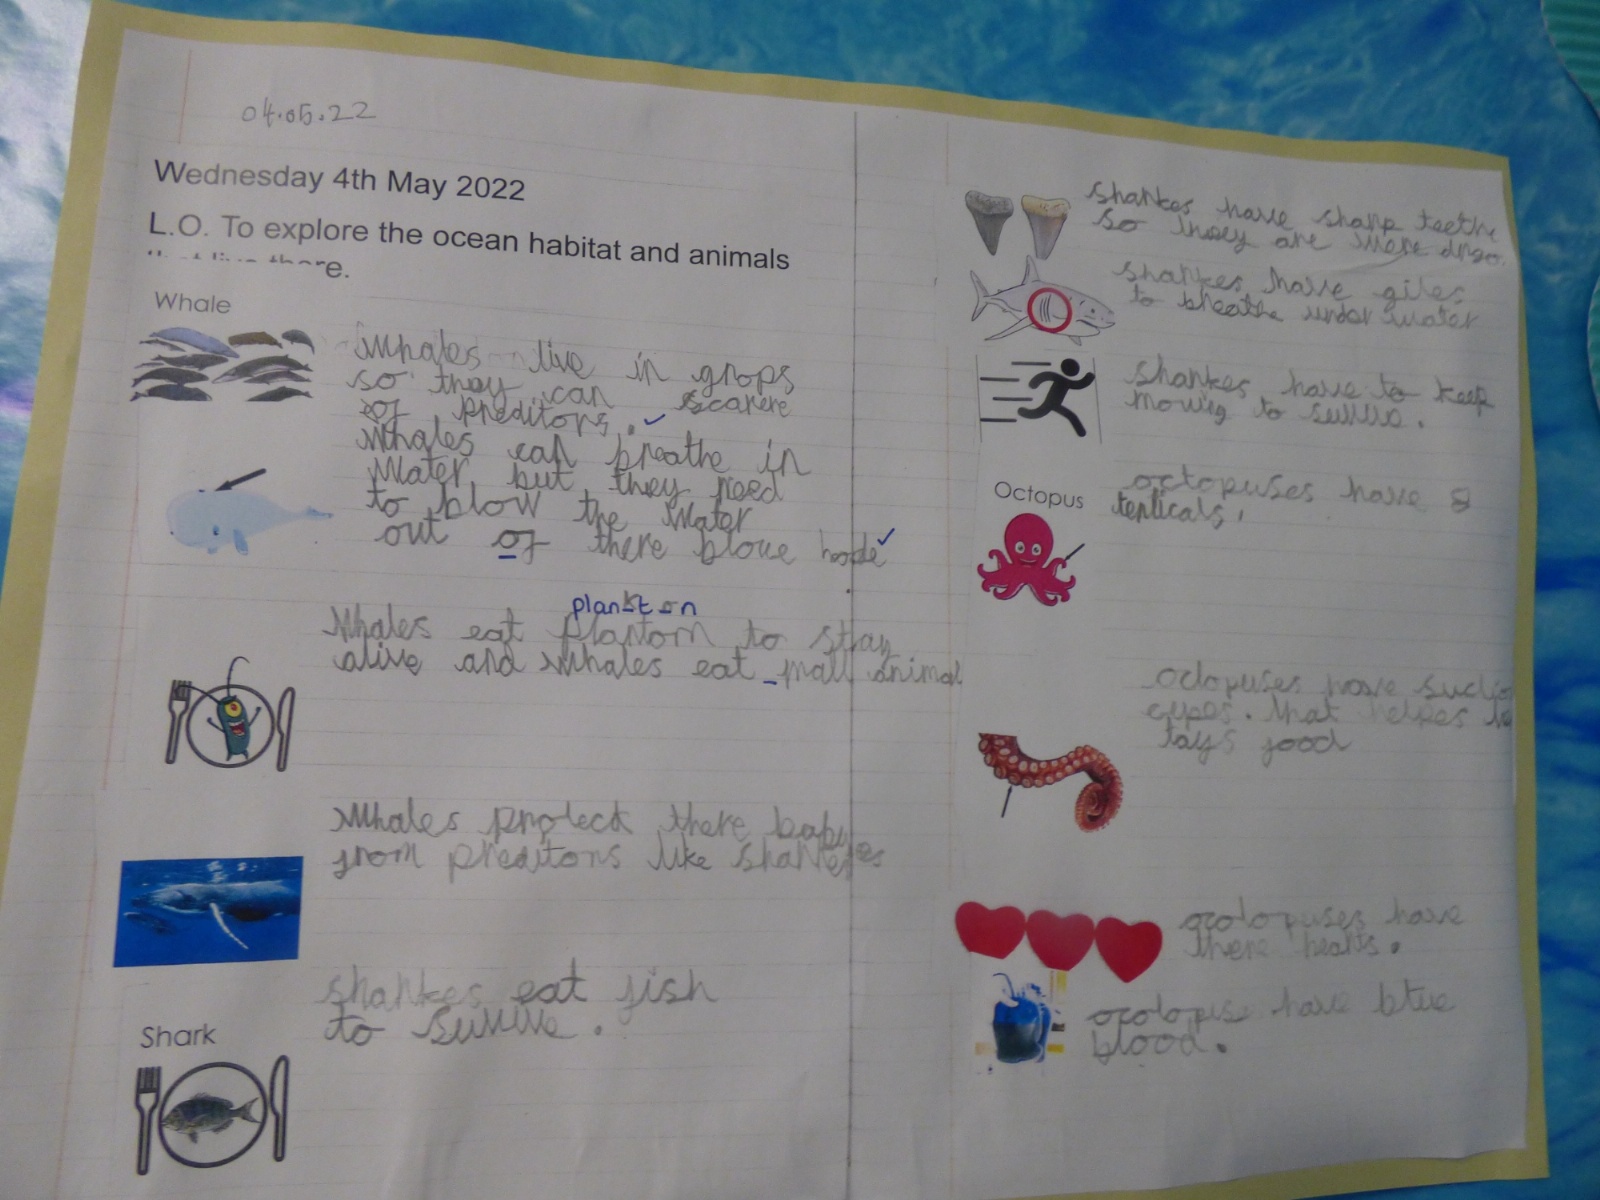 04.05.22
Wednesday 4th May 2022
L.O. To explore the ocean habitat and animals
that live there.
Whale
whales live in grops
so they can scarere
of preditors.
Whales can breathe in
Water but they need
to blow the water
out of there bloue hode
plankton
Whales eat plantorn to stay
alive and whales eat mall animal
Whales protect there baby
from preditors like sharkes
Shark
sharkes eat fish
to suvive.
sharkes have sharp teethe
so theey are more
sharkes have giles
to breathe under water
sharkes have to keep
moving to suvive.
Octopus
octopuses have 8
tenticals.
octopuses have suctio
cupes. that helpes
tays food
octopuses have
there hearts.
octopuse have blue
blood.